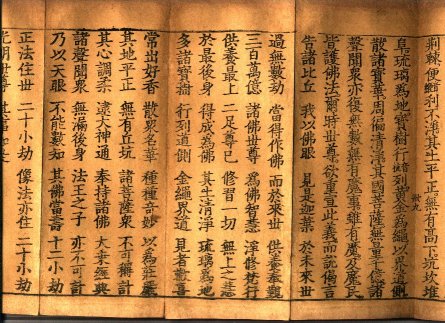 荊棘便利不淨其土平正無有高下坑坎堆
阜琉璃為地寶樹行列黃金為繩以界道側
散諸寶華周遍清淨其國菩薩無量千億諸
聲聞眾亦復無數無有魔事雖有魔及魔民
皆護佛法爾時世尊欲重宣此義而說偈言
告諸比丘 我以佛眼 見是迦葉 於未來世
過無數劫 當得作佛 而於來世 供養奉覲
三百萬億 諸佛世尊 為佛智慧 淨修梵行
供養最上 二足尊已 修習一切 無上之慧
於最後身 得成為佛 其土清淨 琉璃為地
多諸寶樹 行列道側 金繩界道 見者歡喜
常出好香 散眾名華 種種奇妙 以為莊嚴
其地平正 無有丘坑 諸菩薩眾 不可稱計
其心調柔 逮大神通 奉持諸佛 大乘經典
諸聲聞眾 無漏後身 法王之子 亦不可計
乃以天眼 不能數知 其佛當壽 十二小劫
正法住世 二十小劫 像法亦住 二十小劫
光明世尊